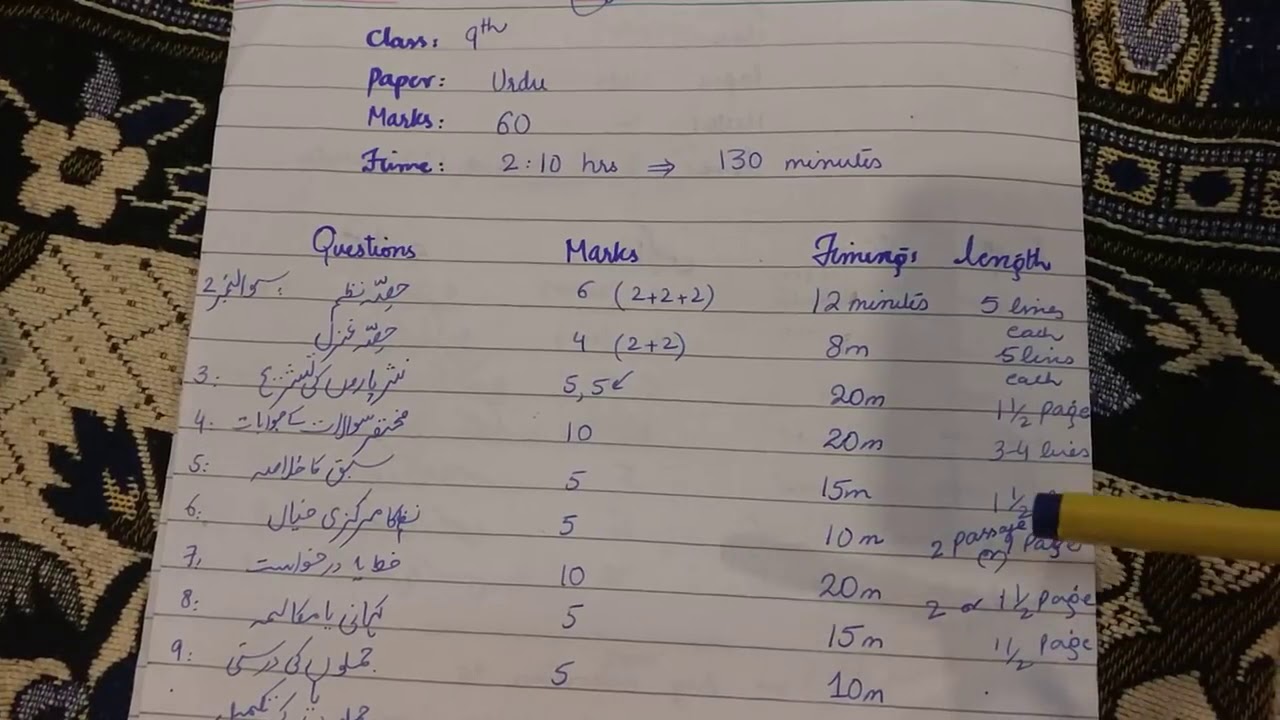 Class: 9th
Paper: Urdu
Marks: 60
Time: 2:10 hrs ⇒ 130 minutes
Questions Marks Timings length
سوال نمبر 2: حصّہ نظم 6 (2+2+2) 12 minutes 5 lines each
حصّہ غزل 4 (2+2) 8m 5 lines each
3: نثر پاروں کی تشریح 5,5 20m 1 1/2 page
4. مختصر سوالات کے جوابات 10 20m 3-4 lines
5: سبق کا خلاصہ 5 15m 1 1/2
6. نظم کا مرکزی خیال 5 10m 2 passage (or) 1 page
7, خط یا درخواست 10 20m 2 or 1 1/2 page
8: کہانی یا مکالمہ 5 15m 1 1/2 page
9: جملوں کی درستی 5 10m
یا